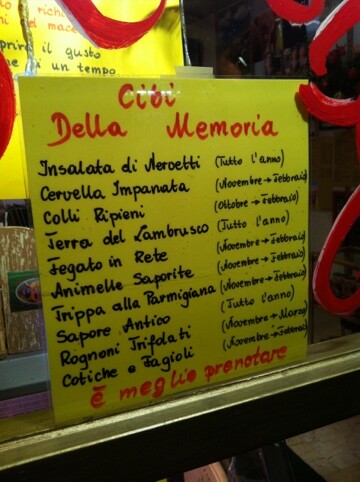 il gusto
un tempo
Cibi
Della Memoria
Insalata di Nervetti (Tutto l'anno)
Cervella Impanata (Novembre → Febbraio)
Colli Ripieni (Ottobre → Febbraio)
Terra del Lambrusco (Tutto l'anno)
Fegato in Rete (Novembre → Febbraio)
Animelle Saporite (Novembre → Febbraio)
Trippa alla Parmigiana (Novembre → Febbraio)
Sapore Antico (Tutto l'anno)
Rognoni Trifolati (Novembre → Marzo)
Cotiche e Fagioli (Novembre → Febbraio)
È meglio prenotare